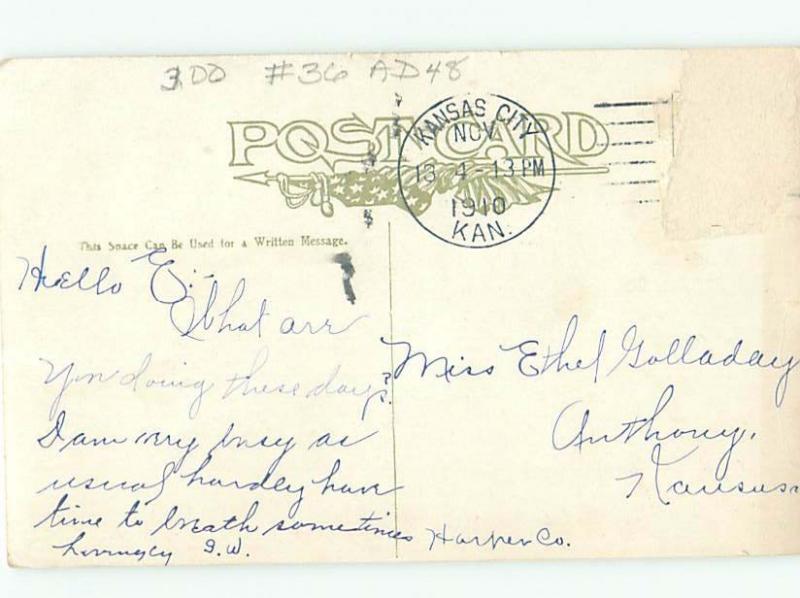 300 #36 AD48
POST CARD
KANSAS CITY
NOV
13 4-13PM
1910
KAN.
This Space Can Be Used for a Written Message.
Hello E.-
What are
You doing these days?
I am very busy as
usual hardley have
time to breath sometimes
Lovingly G.W.
Miss Ethel Golladay
Anthony,
Kansas
Harper Co.